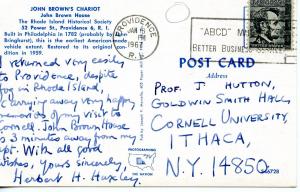 JOHN BROWN'S CHARIOT
John Brown House
The Rhode Island Historical Society
52 Power St., Providence 6, R. I.
Built in Philadelphia in 1782 (probably by John
Bringhurst), this is the earliest American-made
vehicle extant. Restored to its original con-
dition in 1959.
I returned very easily
to Providence, despite
fog in Rhode Island,
carrying away very happy
memories of my visit to
Cornell. John Brown House
is 3 minutes away from my
apt. With all good
wishes, Yours sincerely,
Herbert H. Huxley.
PROVIDENCE
JAN
PM
1967
R.I.
"ABCD"
BETTER BUSINESS
POST CARD
Address
PROF. J. HUTTON,
GOLDWIN SMITH HALL,
CORNELL UNIVERSITY,
ITHACA,
N.Y. 14850
PHOTOGRAPHING
THE NATION